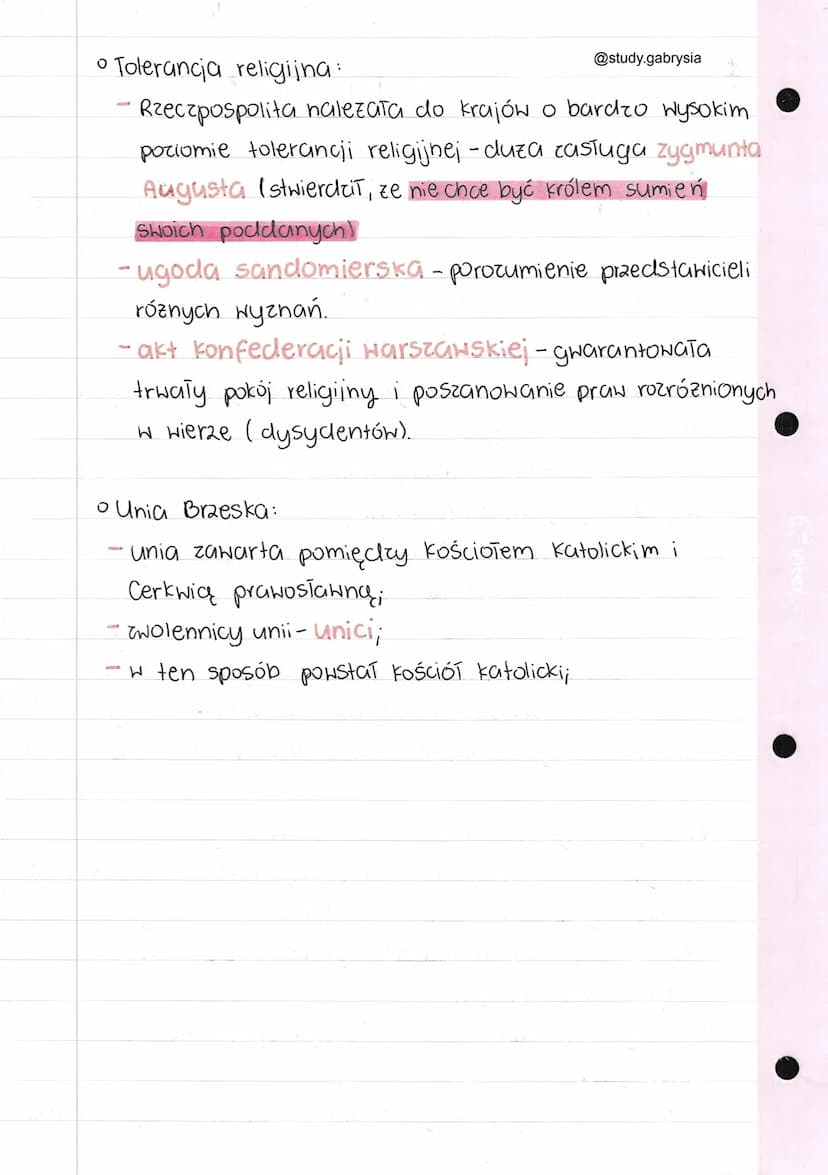 @study.gabrysia
° Tolerancja religijna:
- Rzeczpospolita należała do krajów o bardzo wysokim
poziomie tolerancji religijnej - duża zasługa zygmunta
Augusta (stwierdził, że nie chce być królem sumień
swoich poddanych)
- ugoda sandomierska - porozumienie przedstawicieli
różnych wyznań.
- akt konfederacji warszawskiej - gwarantowała
trwały pokój religijny i poszanowanie praw rozróżnionych
w wierze (dysydentów).
° Unia Brzeska:
- unia zawarta pomiędzy kościołem katolickim i
Cerkwią prawosławną;
- zwolennicy unii - unici;
- w ten sposób powstał kościół katolicki;